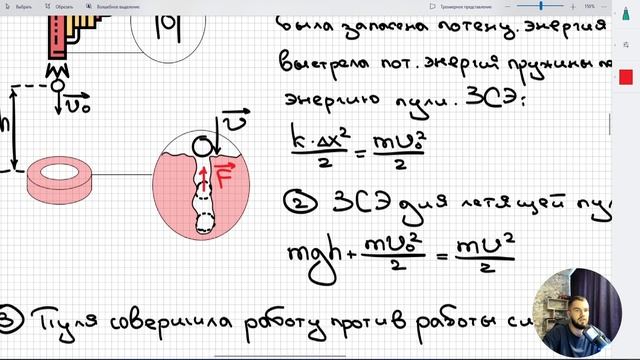 Открыть
Обрезать
Волшебное выделение
Трехмерное представление
150%
была запасена потенц. энергия
выстрела пот. энергия пружины
энергию пули. ЗСЭ:
k·Δx²/2 = mυ₀²/2
h
υ₀
υ
F
② ЗСЭ для летящей пул
mgh + mυ₀²/2 = mυ²/2
③ Пуля совершила работу против работы си